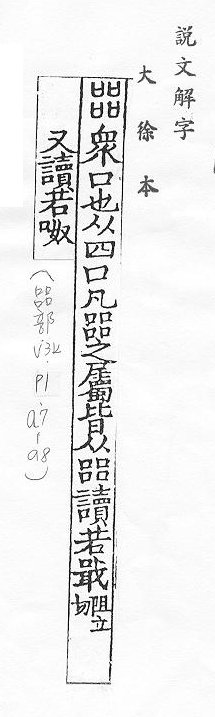 説文解字
大徐本
㗊衆口也从四口凡㗊之屬皆从㗊讀若戢阻立切
又讀若呶
(㗊部 V3上 P1 a7-a8)